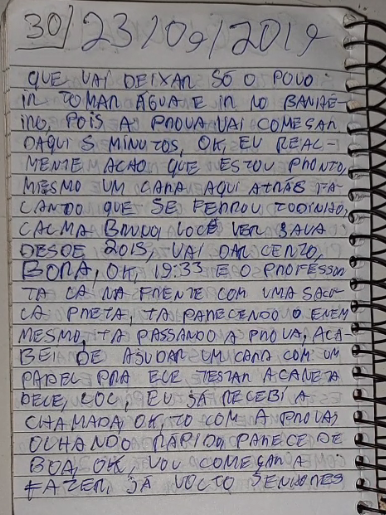 30 23/09/2019
QUE VAI DEIXAR SÓ O POVO
IR TOMAR ÁGUA E IR NO BANHE-
IRO, POIS A PROVA VAI COMEÇAR
DAQUI 5 MINUTOS, OK, EU REAL-
MENTE ACHO QUE ESTOU PRONTO,
MESMO UM CARA AQUI ATRÁS FA-
LANDO QUE SE FERROU TODINHO,
CALMA BRUNO, VOCÊ VER SAVA
DESDE 2015, VAI DAR CERTO,
BORA, OK, 19:33 E O PROFESSOR
TA CA NA FRENTE COM UMA SACO-
LA PRETA, TA PARECENDO O ENEM
MESMO, TA PASSANDO A PROVA, ACA-
BEI DE AJUDAR UM CARA COM UM
PAPEL PRA ELE TESTAR A CANETA
DELE, LOL, EU JÁ RECEBI A
CHAMADA, OK, TO COM A PROVA,
OLHANDO RÁPIDO, PARECE DE
BOA, OK, VOU COMEÇAR A
FAZER, JÁ VOLTO SENHORES